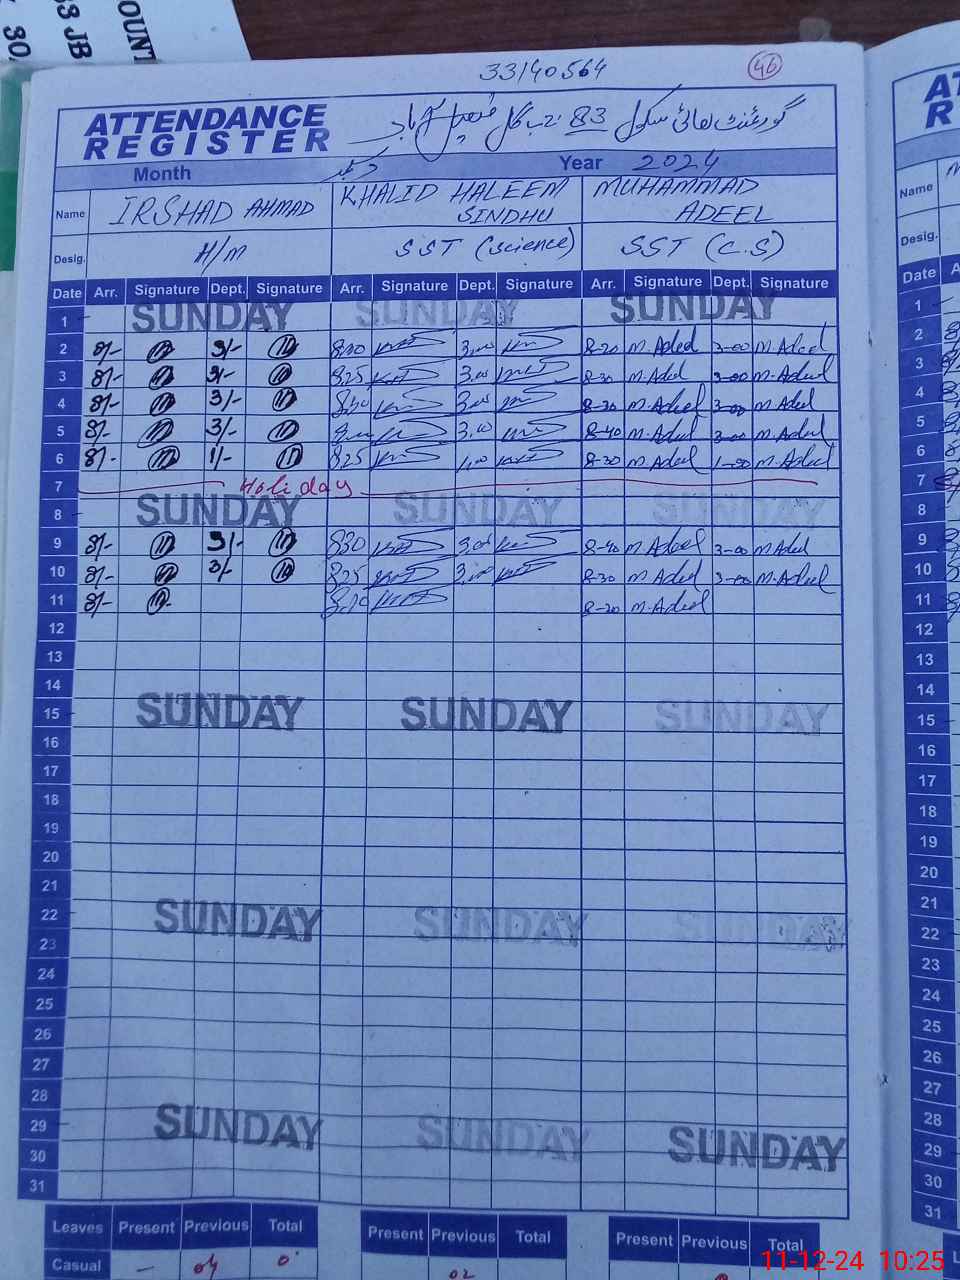 OUNT
33 JB
30
33/40564
46
ATTENDANCE
REGISTER
گورنمنٹ ہائی سکول 83
Month دسمبر Year 2024
Name IRSHAD AHMAD KHALID HALEEM SINDHU MUHAMMAD ADEEL
Desig. H/M SST (science) SST (C.S)
Date Arr. Signature Dept. Signature Arr. Signature Dept. Signature Arr. Signature Dept. Signature
1 SUNDAY SUNDAY SUNDAY
2 8/- 3/- 8:30 3.00 8-20 M.Adeel 3-00 M.Adeel
3 8/- 3/- 825 3.00 8-30 M.Adeel 3-00 M.Adeel
4 8/- 3/- 3.00 8-30 M.Adeel 3-00 M.Adeel
5 8/- 3/- 3.00 8-40 M.Adeel 3-00 M.Adeel
6 8/- 1/- 825 1.00 8-30 M.Adeel 1-00 M.Adeel
7 Holiday
8 SUNDAY SUNDAY SUNDAY
9 8/- 3/- 830 3.00 8-40 M.Adeel 3-00 M.Adeel
10 8/- 3/- 825 3.00 8-30 M.Adeel 3-00 M.Adeel
11 8/- 8-20 M.Adeel
12
13
14
15 SUNDAY SUNDAY SUNDAY
16
17
18
19
20
21
22 SUNDAY SUNDAY SUNDAY
23
24
25
26
27
28
29 SUNDAY SUNDAY SUNDAY
30
31
Leaves Present Previous Total Present Previous Total Present Previous Total
Casual - 04 02
Name
Desig.
Date
1
2
3
4
5
6
7
8
9
10
11
12
13
14
15
16
17
18
19
20
21
22
23
24
25
26
27
28
29
30
31
11-12-24 10:25